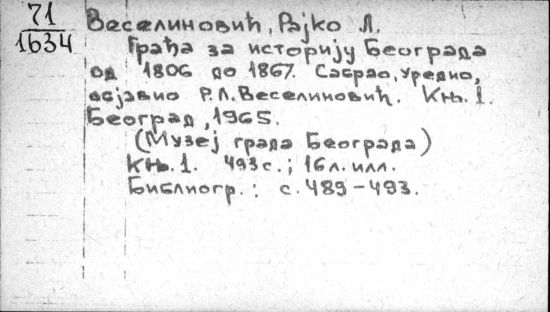 71
1634
Веселиновић, Рајко Л.
Грађа за историју Београда
од 1806 до 1867. Сабрао, уредио,
објавио Р.Л. Веселиновић. Књ. 1.
Београд, 1965.
(Музеј града Београда)
Књ. 1. 493 с.; 16 л. илл.
Библиогр.: с. 489-493.